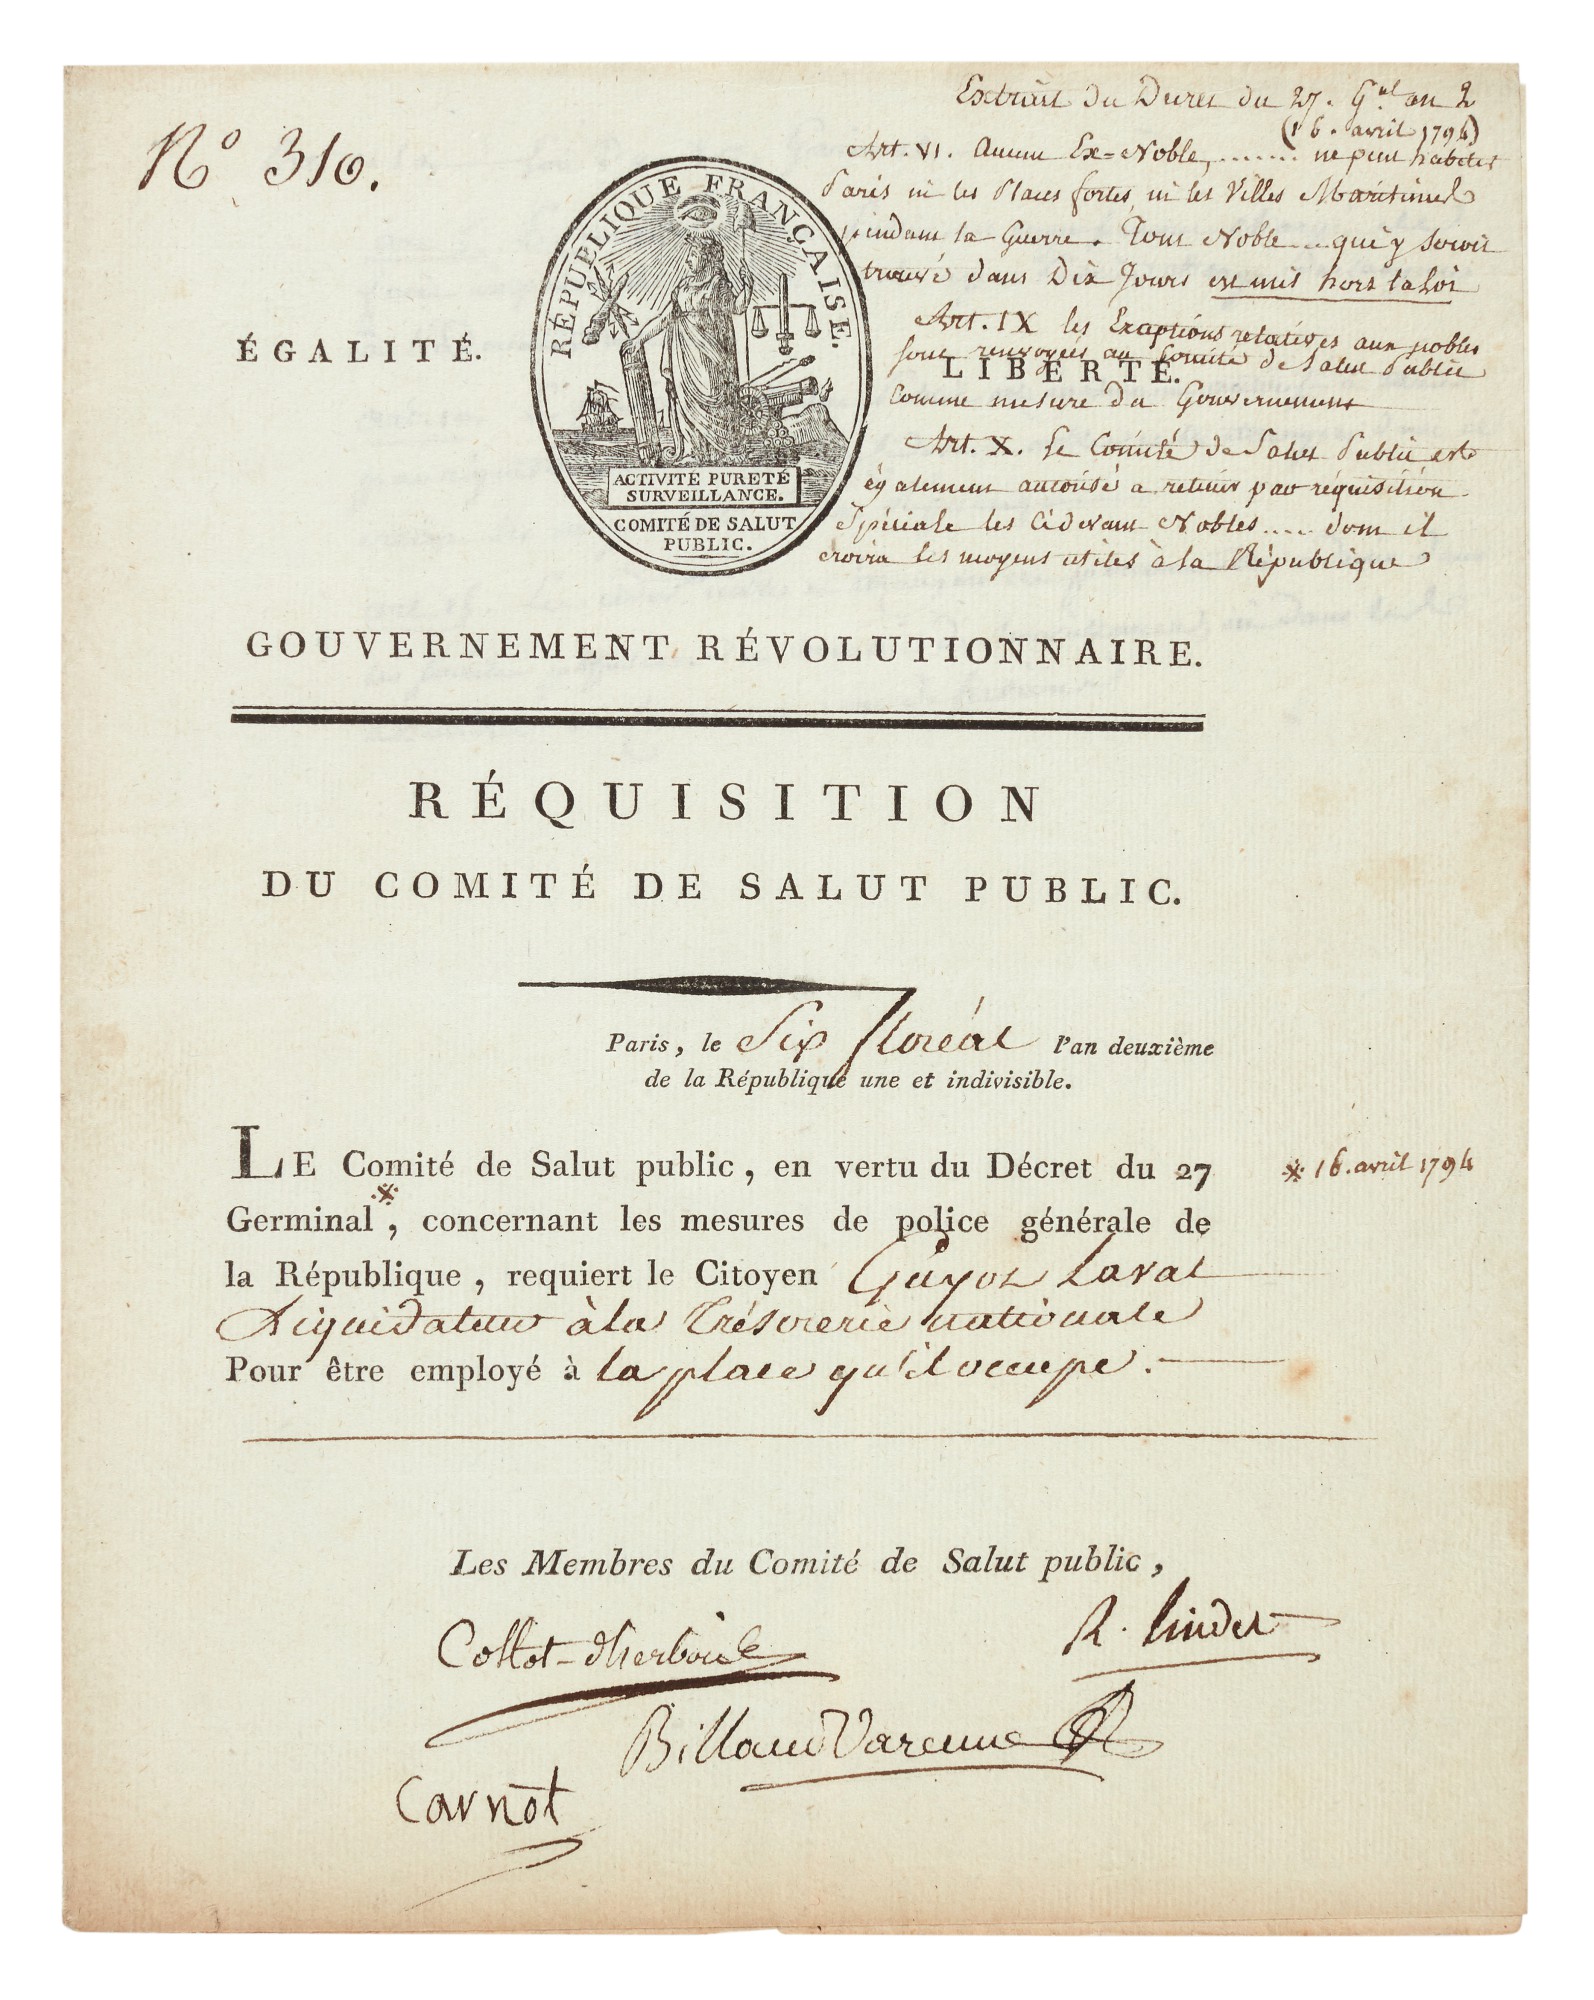 Nº 310.
Extrait du Decret du 27. G.nal an 2
(16. avril 1794)
Art. VI. Aucun Ex=Noble, ....... ne peut habiter
Paris ni les Places fortes, ni les Villes Maritimes
pendant la Guerre. Tout Noble .. qui y seroit
trouvé dans Dix Jours est mis hors la Loi
Art. IX les Exceptions relatives aux nobles
sont renvoyées au Comité de Salut Public
comme mesure du Gouvernement
Art. X. Le Comité de Salut Public est
également autorisé a retenir par réquisition
Spéciale les cidevant Nobles ..... dont il
croira les moyens utiles à la République
RÉPUBLIQUE FRANÇAISE.
ÉGALITÉ.
LIBERTÉ.
ACTIVITÉ PURETÉ
SURVEILLANCE.
COMITÉ DE SALUT
PUBLIC.
GOUVERNEMENT RÉVOLUTIONNAIRE.
RÉQUISITION
DU COMITÉ DE SALUT PUBLIC.
Paris, le Six floréal l'an deuxième
de la République une et indivisible.
LE Comité de Salut public, en vertu du Décret du 27
※ 16. avril 1794
Germinal※, concernant les mesures de police générale de
la République, requiert le Citoyen Guyot Laval
Liquidateur à la Trésorerie nationale
Pour être employé à la place qu'il occupe.
Les Membres du Comité de Salut public,
Collot-d'herbois
R. Lindet
Billaud Varenne
Carnot